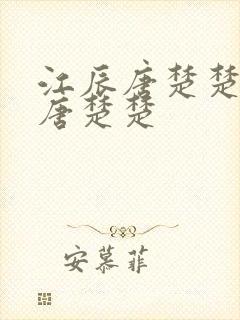 江辰唐楚楚
唐楚楚
安慕菲